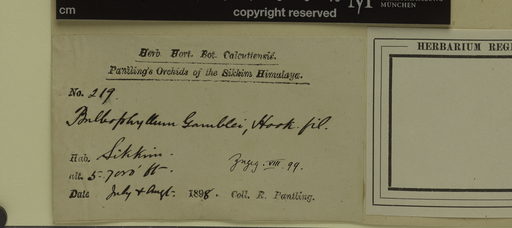 cm
copyright reserved
MÜNCHEN
Herb. Hort. Bot. Calcuttensis.
Pantling's Orchids of the Sikkim Himalaya.
No. 219.
Bulbophyllum Gamblei, Hook. fil.
Hab. Sikkim.
alt. 5-7000 ft.
VIII. 99.
Date July & Augt. 1898. Coll. R. Pantling.
HERBARIUM REGI